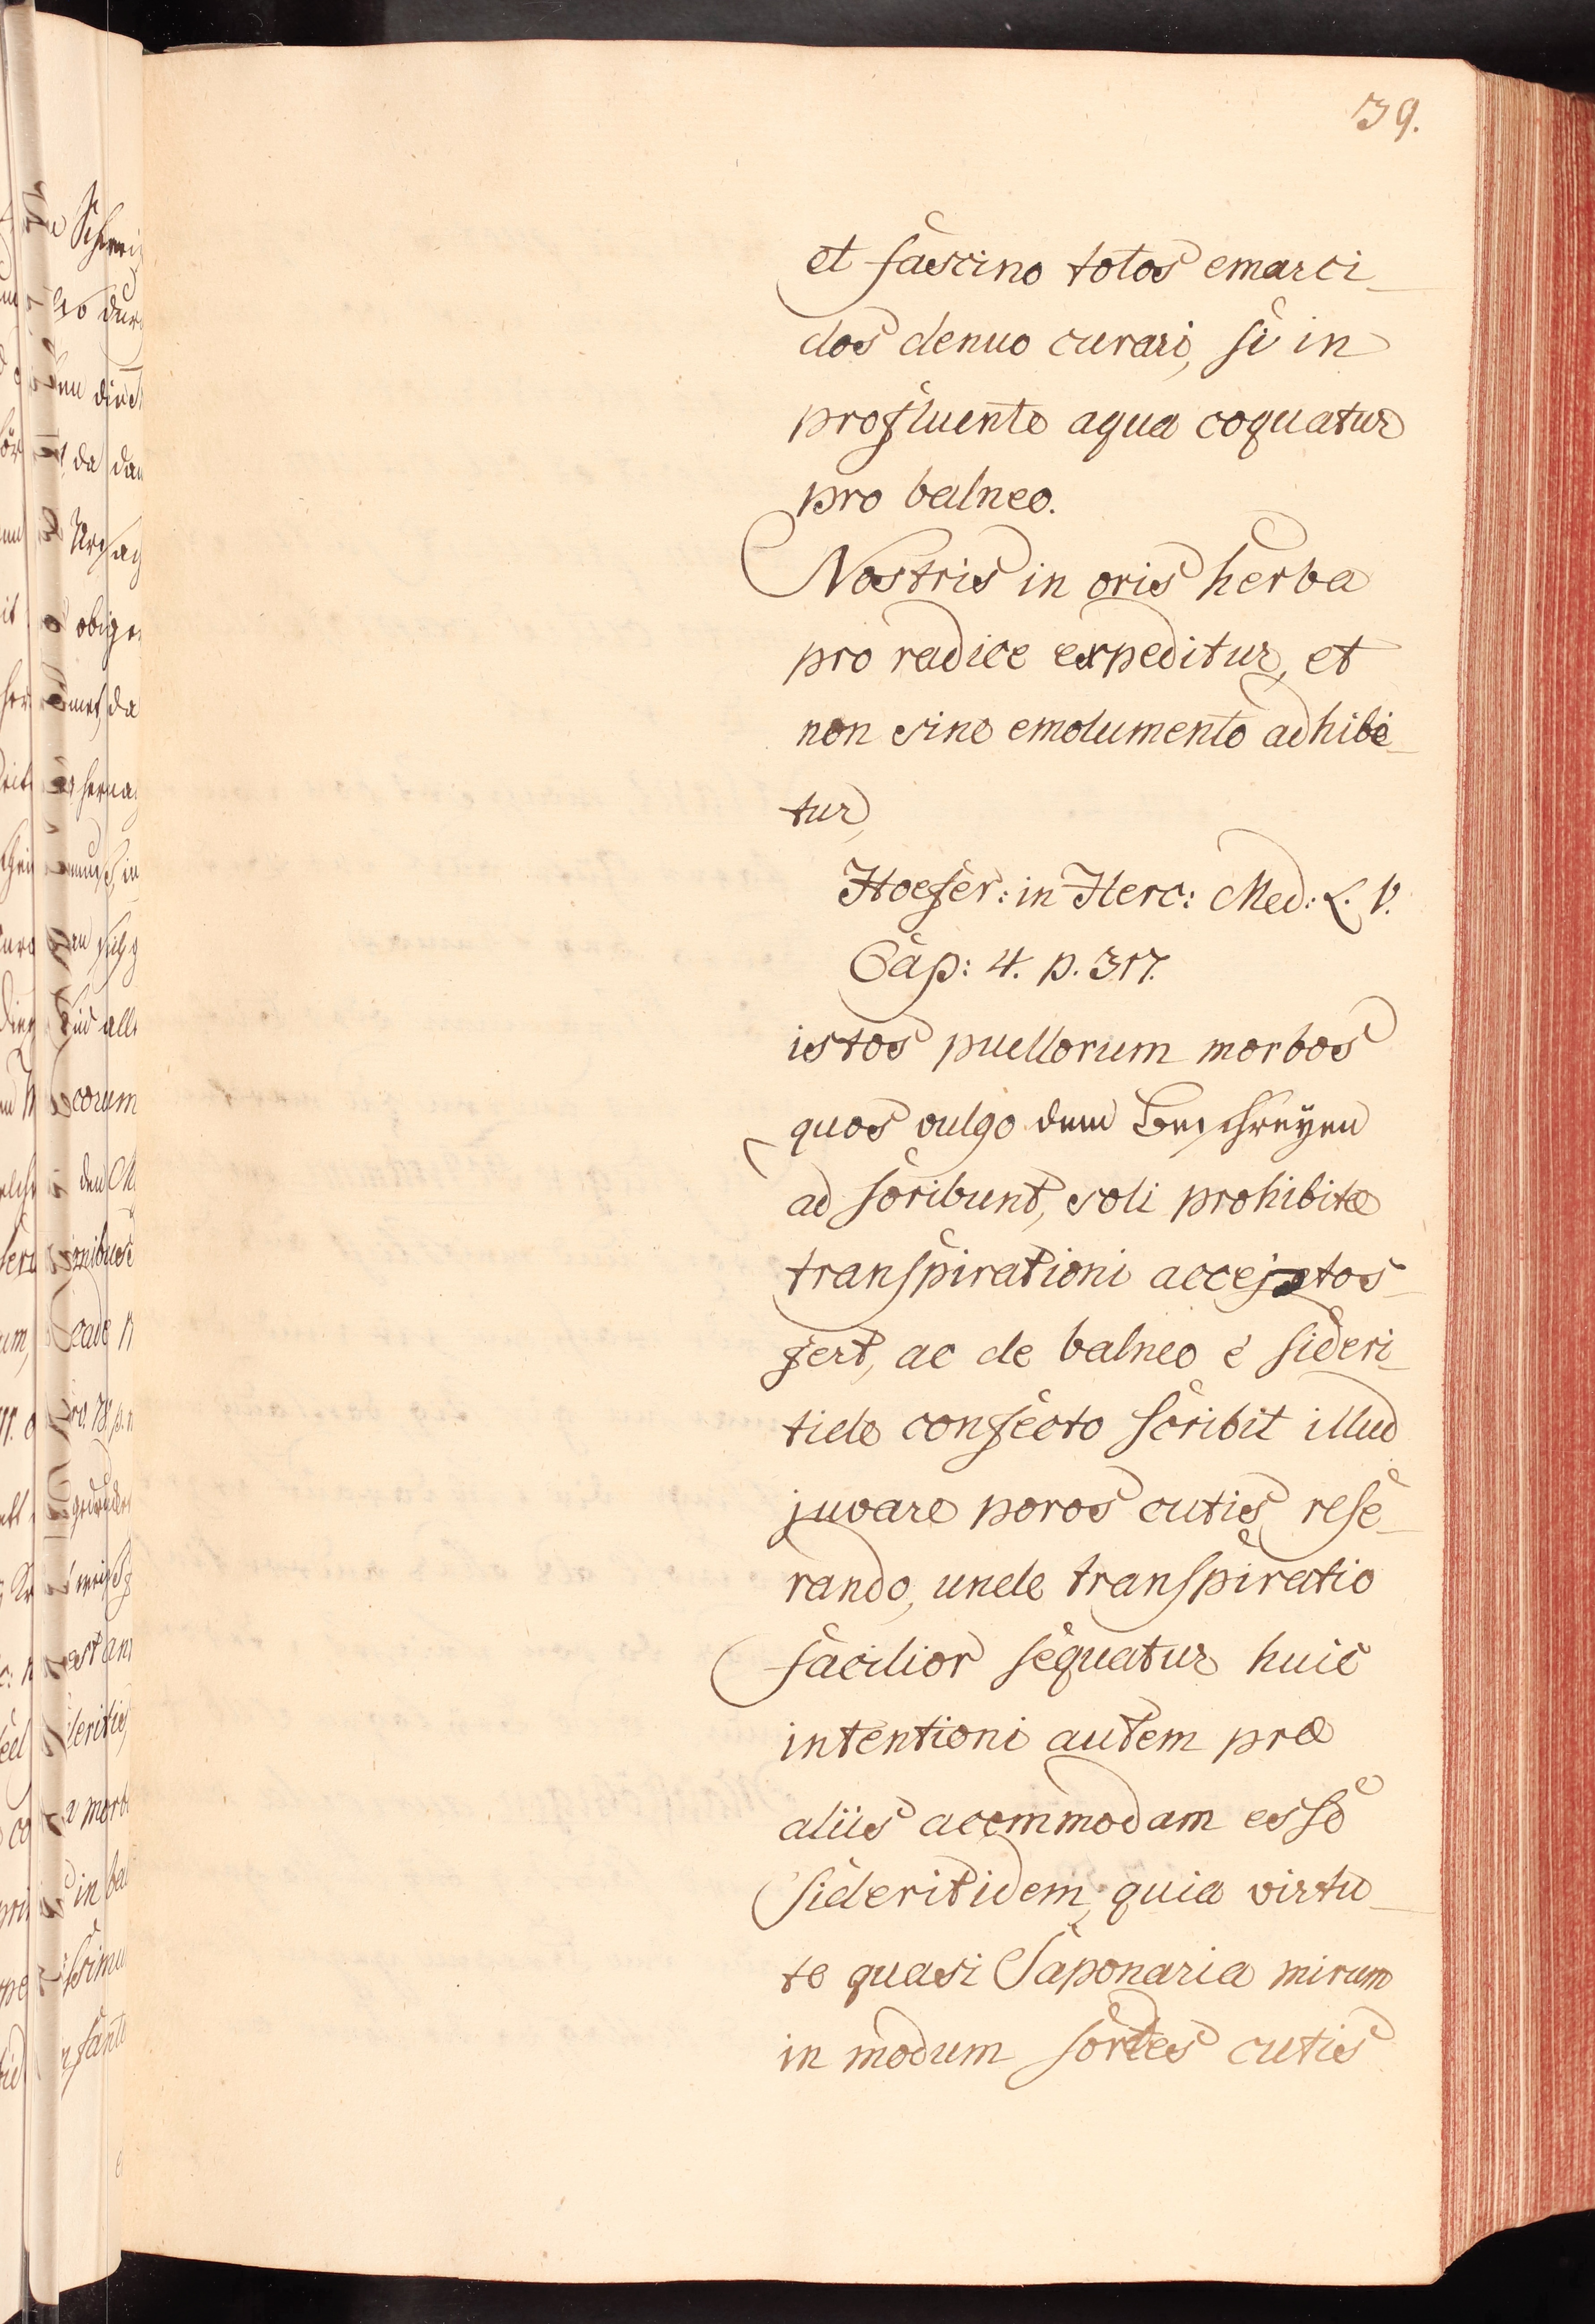 39.
et fascino totos emarci-
dos denuo curari, si in
profluente aqua coquatur
pro balneo.
Nostris in oris herba
pro radice expeditur, et
non sine emolumento adhibe-
tur,
Hoefer: in Herc: Med: L. V.
Cap: 4. p. 317.
istos puellorum morbos
quos vulgo dem Beschreyen
ad scribunt, soli prohibitæ
transpirationi acceptos
fert, ac de balneo è sideri-
tide confecto scribit illud
juvare poros cutis rese-
rando, unde transpiratio
facilior sequatur huic
intentioni autem præ
aliis acommodam esse
sideritidem, quia virtu-
te quasi Saponaria mirum
in modum sordes cutis